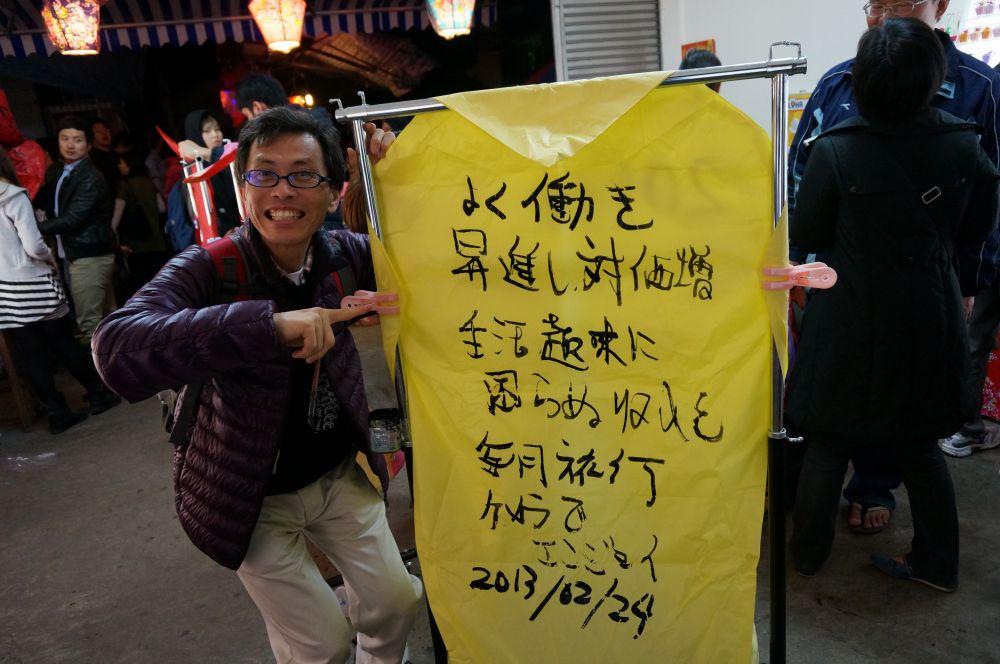 よく働き
昇進し.対価増
生活趣味に
困らぬ収入も
毎月旅行
かろうで
エンジョイ
2013/02/24